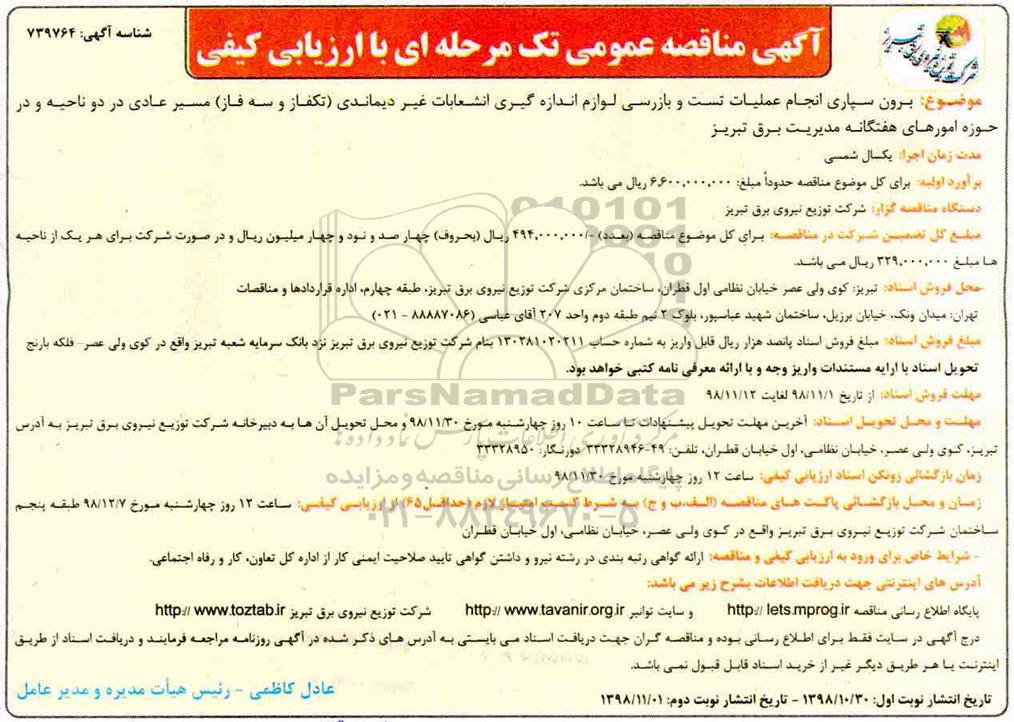 شناسه آگهی: ۷۳۹۷۶۴
آگهی مناقصه عمومی تک مرحله ای با ارزیابی کیفی
موضوع: برون سپاری انجام عملیات تست و بازرسی لوازم اندازه گیری انشعابات غیر دیماندی (تکفاز و سه فاز) مسیر عادی در دو ناحیه و در
حوزه امورهای هفتگانه مدیریت برق تبریز
مدت زمان اجرا: یکسال شمسی
برآورد اولیه: برای کل موضوع مناقصه حدوداً مبلغ: ۶,۶۰۰,۰۰۰,۰۰۰ ریال می باشد.
دستگاه مناقصه گزار: شرکت توزیع نیروی برق تبریز
مبلغ کل تضمین شرکت در مناقصه: برای کل موضوع مناقصه (بعدد) -/۴۹۴,۰۰۰,۰۰۰ ریال (بحروف) چهار صد و نود و چهار میلیون ریال و در صورت شرکت برای هر یک از ناحیه
ها مبلغ ۳۲۹,۰۰۰,۰۰۰ ریال می باشد.
-محل فروش اسناد: تبریز: کوی ولی عصر خیابان نظامی اول قطران، ساختمان مرکزی شرکت توزیع نیروی برق تبریز، طبقه چهارم، اداره قراردادها و مناقصات
تهران: میدان ونک، خیابان برزیل، ساختمان شهید عباسپور، بلوک ۲ نیم طبقه دوم واحد ۲۰۷ آقای عباسی (۸۸۸۸۷۰۸۶ - ۰۲۱)
مبلغ فروش اسناد: مبلغ فروش اسناد پانصد هزار ریال قابل واریز به شماره حساب ۱۳۰۳۸۱۰۲۰۲۱۱ بنام شرکت توزیع نیروی برق تبریز نزد بانک سرمایه شعبه تبریز واقع در کوی ولی عصر- فلکه بارنج
تحویل اسناد با ارایه مستندات واریز وجه و با ارائه معرفی نامه کتبی خواهد بود.
ParsNamadData
مهلت فروش اسناد: از تاریخ ۹۸/۱۱/۱ لغایت ۹۸/۱۱/۱۲
مهلت و محل تحویل اسناد: آخرین مهلت تحویل پیشنهادات تا ساعت ۱۰ روز چهارشنبه مورخ ۹۸/۱۱/۳۰ و محل تحویل آن ها به دبیرخانه شرکت توزیع نیروی برق تبریز به آدرس
تبریز، کوی ولی عصر، خیابان نظامی، اول خیابان قطران، تلفن: ۴۹-۳۳۳۲۸۹۴۶ دورنگار: ۳۳۳۲۸۹۵۰
پایگاه اطلاع رسانی مناقصه و مزایده
زمان بازگشائی زونکن اسناد ارزیابی کیفی: ساعت ۱۲ روز چهارشنبه مورخ ۹۸/۱۱/۳۰
زمان و محل بازگشائی پاکت های مناقصه (الف،ب و ج) به شرط کسب امتیاز لازم (حداقل ۶۵) از ارزیابی کیفی: ساعت ۱۲ روز چهارشنبه مورخ ۹۸/۱۲/۷ طبقه پنجم
۰۲۱-۸۸۳۴۹۶۷۰-۵
ساختمان شرکت توزیع نیروی برق تبریز واقع در کوی ولی عصر، خیابان نظامی، اول خیابان قطران
- شرایط خاص برای ورود به ارزیابی کیفی و مناقصه: ارائه گواهی رتبه بندی در رشته نیرو و داشتن گواهی تایید صلاحیت ایمنی کار از اداره کل تعاون، کار و رفاه اجتماعی.
آدرس های اینترنتی جهت دریافت اطلاعات بشرح زیر می باشد:
پایگاه اطلاع رسانی مناقصه http:// iets.mprog.ir و سایت توانیر http:// www.tavanir.org.ir شرکت توزیع نیروی برق تبریز http:// www.toztab.ir
درج آگهی در سایت فقط برای اطلاع رسانی بوده و مناقصه گران جهت دریافت اسناد می بایستی به آدرس های ذکر شده در آگهی روزنامه مراجعه فرمایند و دریافت اسناد از طریق
اینترنت یا هر طریق دیگر غیر از خرید اسناد قابل قبول نمی باشد.
عادل کاظمی - رئیس هیأت مدیره و مدیر عامل
تاریخ انتشار نوبت اول: ۱۳۹۸/۱۰/۳۰ - تاریخ انتشار نوبت دوم: ۱۳۹۸/۱۱/۰۱